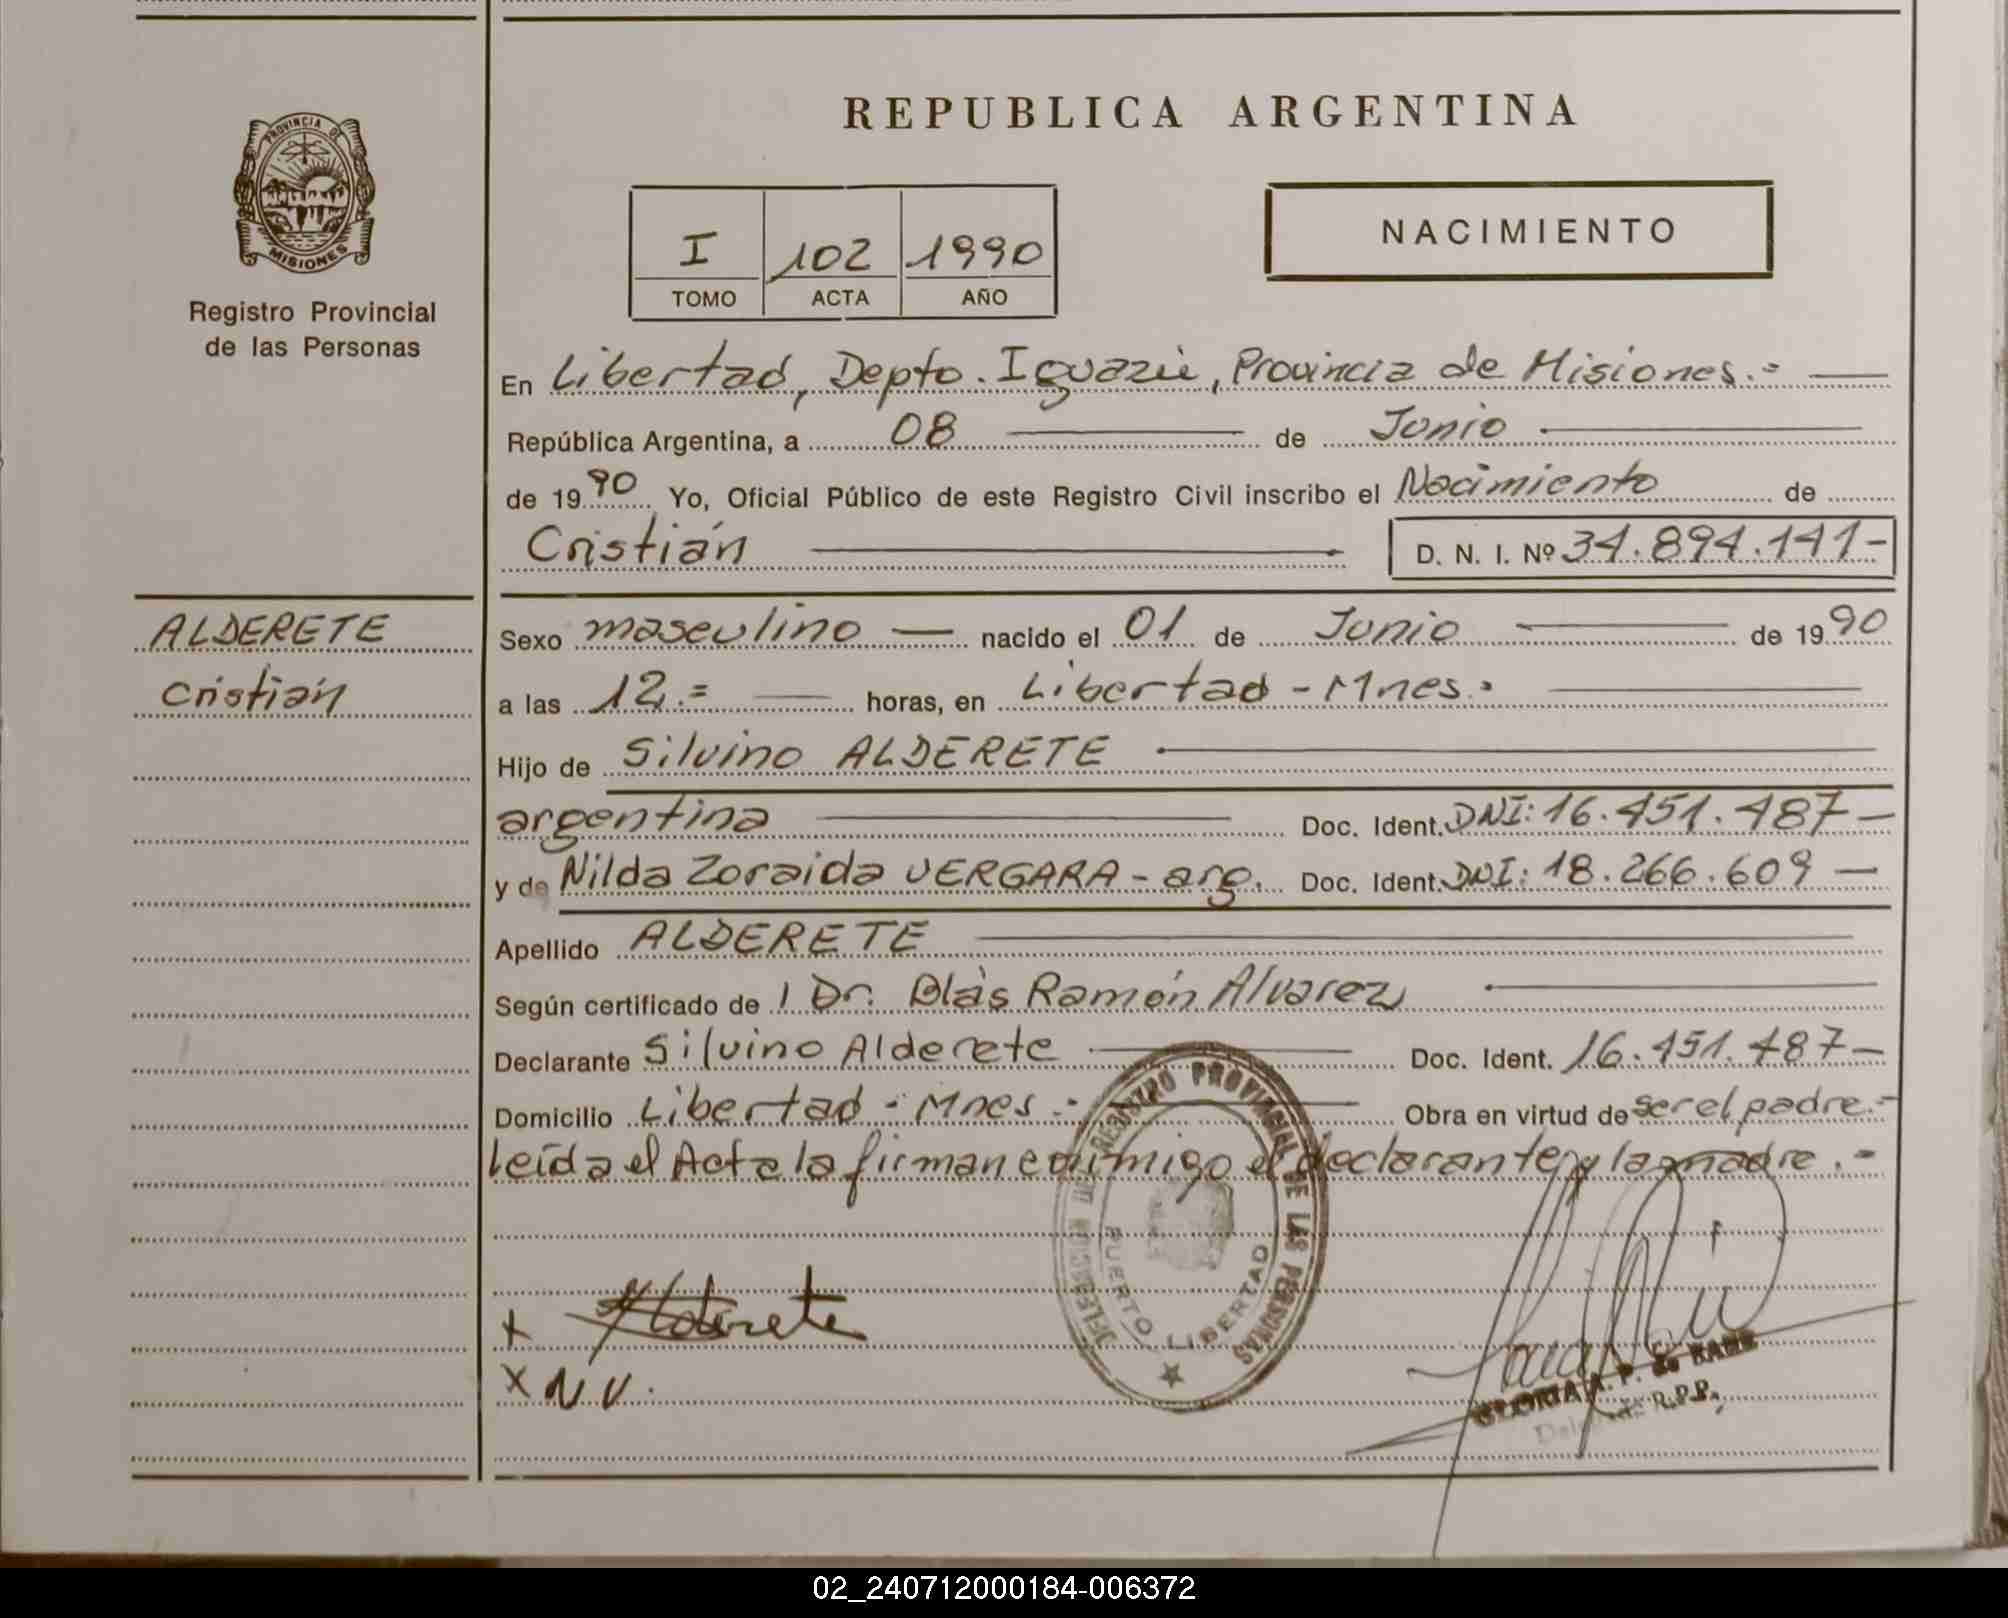 REPUBLICA ARGENTINA
PROVINCIA DE
MISIONES
Registro Provincial
de las Personas
NACIMIENTO
I 102 1990
TOMO ACTA AÑO
En Libertad, Depto. Iguazú, Provincia de Misiones.=
República Argentina, a 08 de Junio
de 1990 Yo, Oficial Público de este Registro Civil inscribo el Nacimiento de
Cristián D. N. I. Nº 34.894.141-
ALDERETE
Cristián
Sexo masculino nacido el 01 de Junio de 1990
a las 12.= horas, en Libertad - Mnes.-
Hijo de Silvino ALDERETE
argentina Doc. Ident. DNI: 16.451.487-
y de Nilda Zoraida VERGARA - arg. Doc. Ident. DNI: 18.266.609-
Apellido ALDERETE
Según certificado de Dr. Blás Ramón Alvarez
Declarante Silvino Alderete Doc. Ident. 16.451.487-
Domicilio Libertad - Mnes.- Obra en virtud de ser el padre.-
Leída el Acta la firman conmigo el declarante y la madre.-
DELEGACION DEL REGISTRO PROVINCIAL DE LAS PERSONAS
PUERTO LIBERTAD
x Alderete
x N.V.
GLORIA A. P. de
R.P.P.
02_240712000184-006372